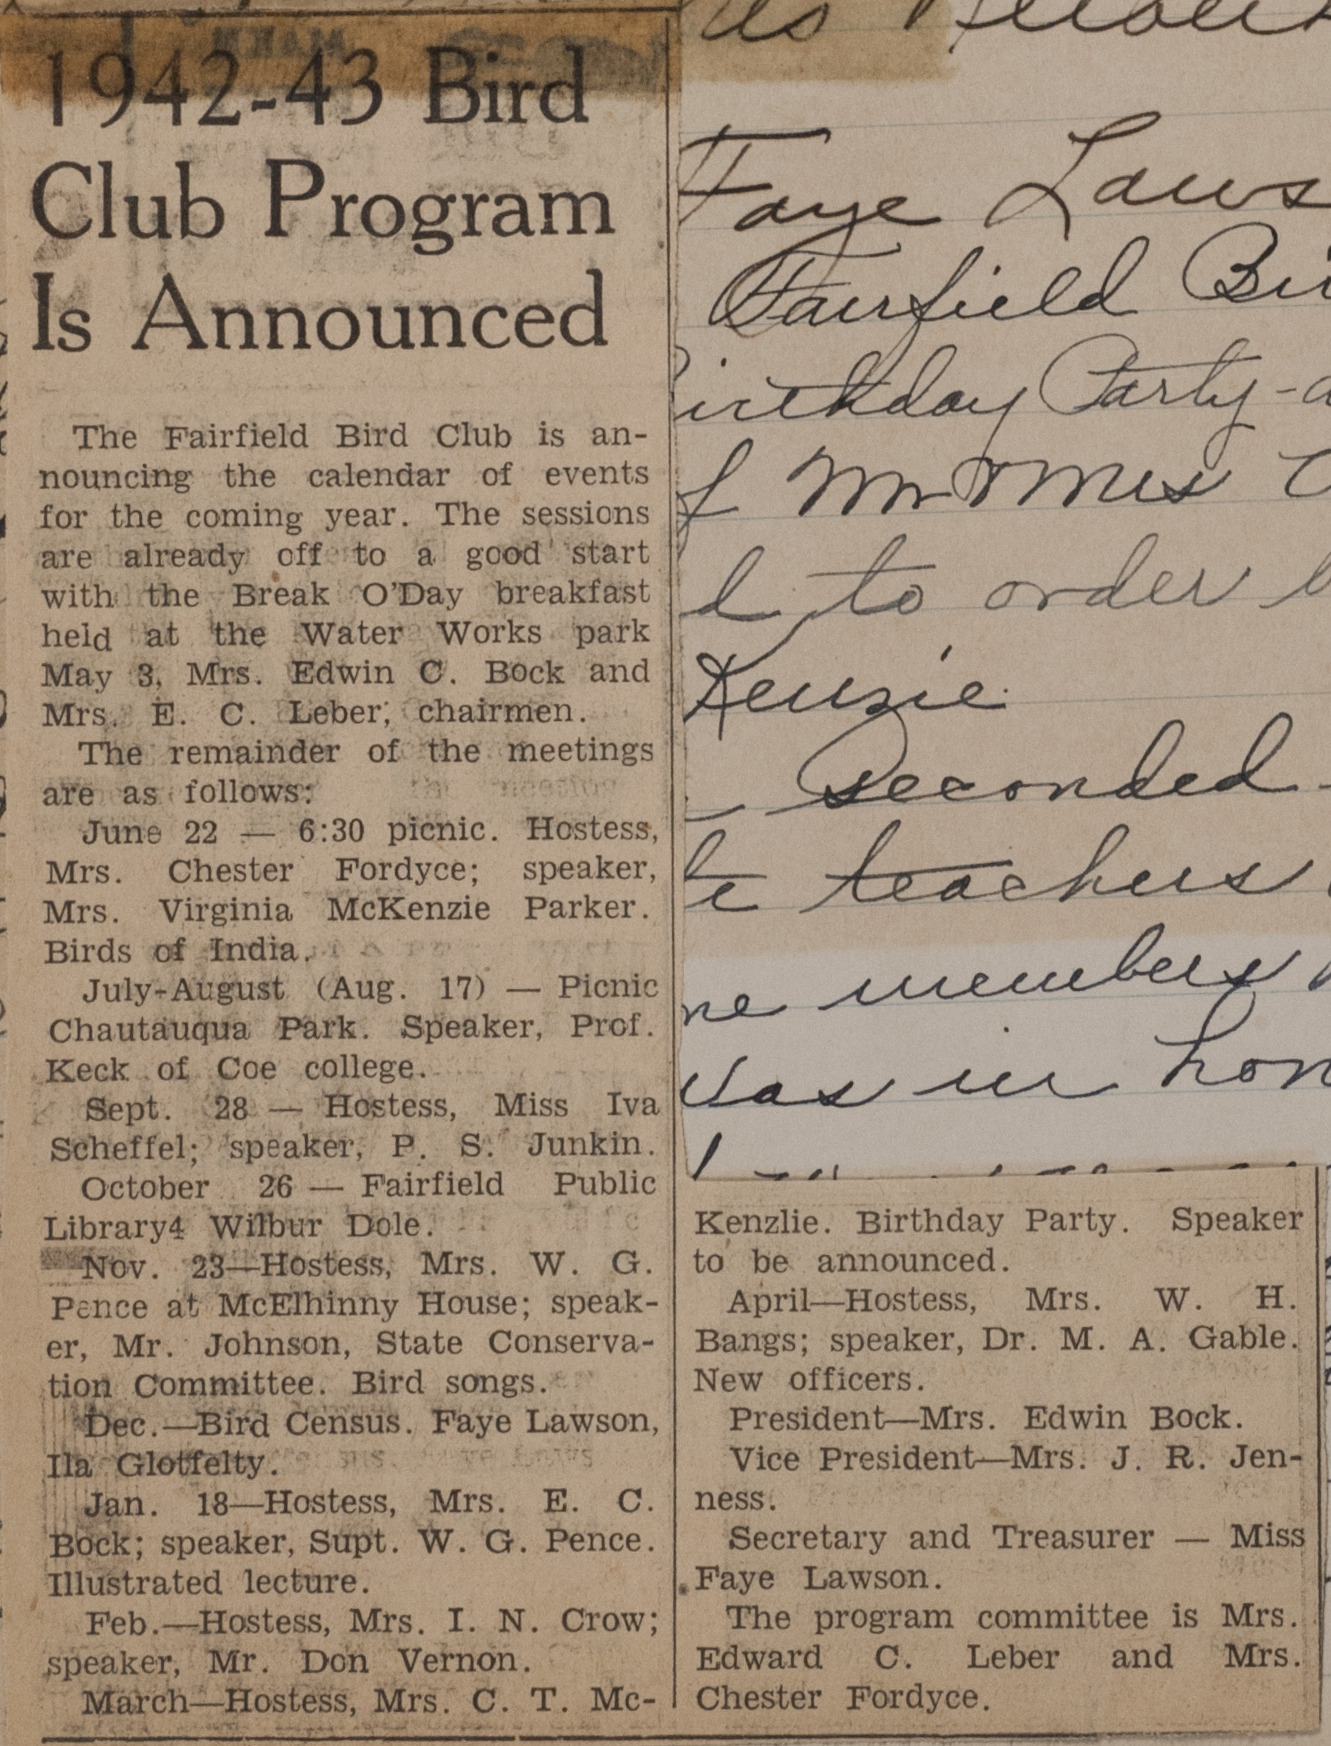 1942-43 Bird
Club Program
Is Announced
The Fairfield Bird Club is an-
nouncing the calendar of events
for the coming year. The sessions
are already off to a good start
with the Break O'Day breakfast
held at the Water Works park
May 3, Mrs. Edwin C. Bock and
Mrs. E. C. Leber, chairmen.
The remainder of the meetings
are as follows:
June 22 — 6:30 picnic. Hostess,
Mrs. Chester Fordyce; speaker,
Mrs. Virginia McKenzie Parker.
Birds of India.
July-August (Aug. 17) — Picnic
Chautauqua Park. Speaker, Prof.
Keck of Coe college.
Sept. 28 — Hostess, Miss Iva
Scheffel; speaker, P. S. Junkin.
October 26 — Fairfield Public
Library4 Wilbur Dole.
Nov. 23—Hostess, Mrs. W. G.
Pence at McElhinny House; speak-
er, Mr. Johnson, State Conserva-
tion Committee. Bird songs.
Dec.—Bird Census. Faye Lawson,
Ila Glotfelty.
Jan. 18—Hostess, Mrs. E. C.
Bock; speaker, Supt. W. G. Pence.
Illustrated lecture.
Feb.—Hostess, Mrs. I. N. Crow;
speaker, Mr. Don Vernon.
March—Hostess, Mrs. C. T. Mc-
Kenzlie. Birthday Party. Speaker
to be announced.
April—Hostess, Mrs. W. H.
Bangs; speaker, Dr. M. A. Gable.
New officers.
President—Mrs. Edwin Bock.
Vice President—Mrs. J. R. Jen-
ness.
Secretary and Treasurer — Miss
Faye Lawson.
The program committee is Mrs.
Edward C. Leber and Mrs.
Chester Fordyce.
Faye Laws
Fairfield Bi
irthday Party-a
f Mr & Mrs C
d to order b
Kenzie
Seconded -
te teachers
ne members
was in hon